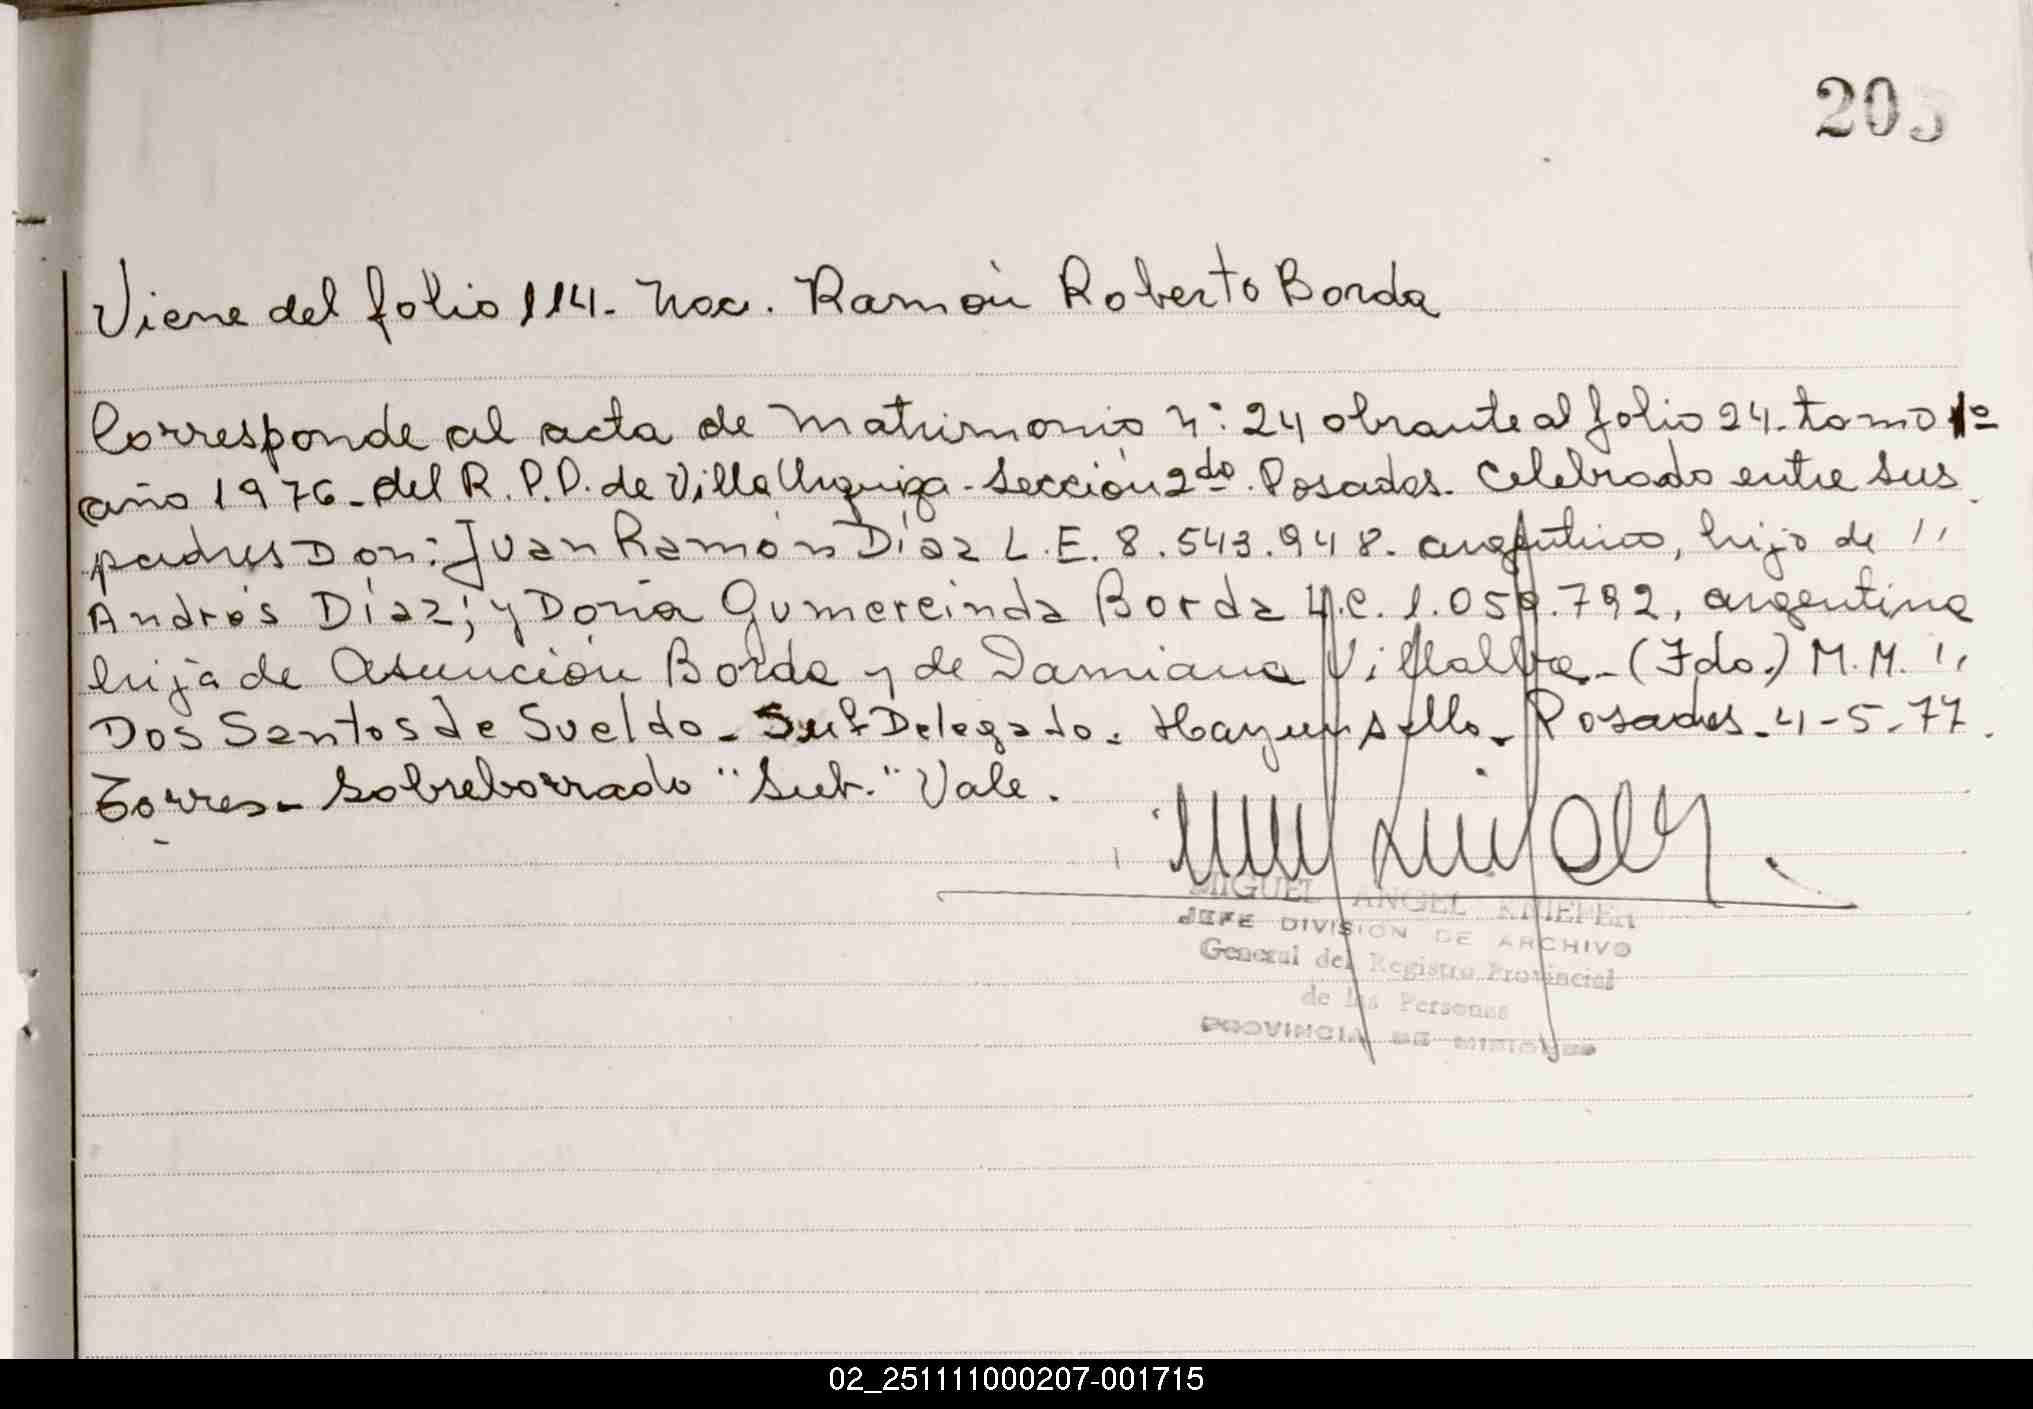 205
Viene del folio 114. Nac. Ramón Roberto Borda
Corresponde al acta de matrimonio n: 24 obrante al folio 24. tomo 1º
año 1976. del R.P.P. de Villa Urquiza. Sección 2do. Posadas. Celebrado entre sus
padres Don: Juan Ramón Díaz L.E. 8.543.948. argentino, hijo de ''
Andrés Díaz; y Doña Gumercinda Borda L.C. 1.059.792, argentina
hija de Asunción Borda y de Damiana Villalba.- (Fdo.) M.M. ''
Dos Santos de Sueldo. Sub Delegado. Hay un sello. Posadas. 4-5-77.
Torres. Sobreborrado "Sub." Vale.
MIGUEL ANGEL KNIEPER
JEFE DIVISIÓN DE ARCHIVO
General del Registro Provincial
de las Personas
PROVINCIA DE MISIONES
02_251111000207-001715